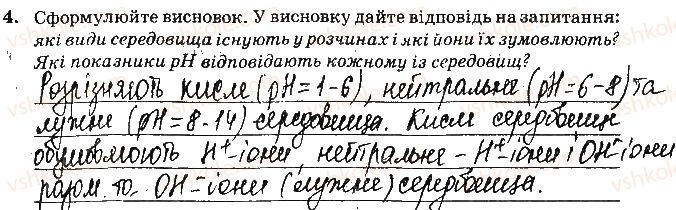 4. Сформулюйте висновок. У висновку дайте відповідь на запитання:
які види середовища існують у розчинах і які йони їх зумовлюють?
Які показники pH відповідають кожному із середовищ?
Розрізняють кисле (pH=1-6), нейтральне (pH=6-8) та
лужне (pH=8-14) середовища. Кисле середовище
обумовлюють H⁺-іони, нейтральне - H⁺-іони і OH⁻-іони
разом. то OH⁻-іони (лужне) середовища.